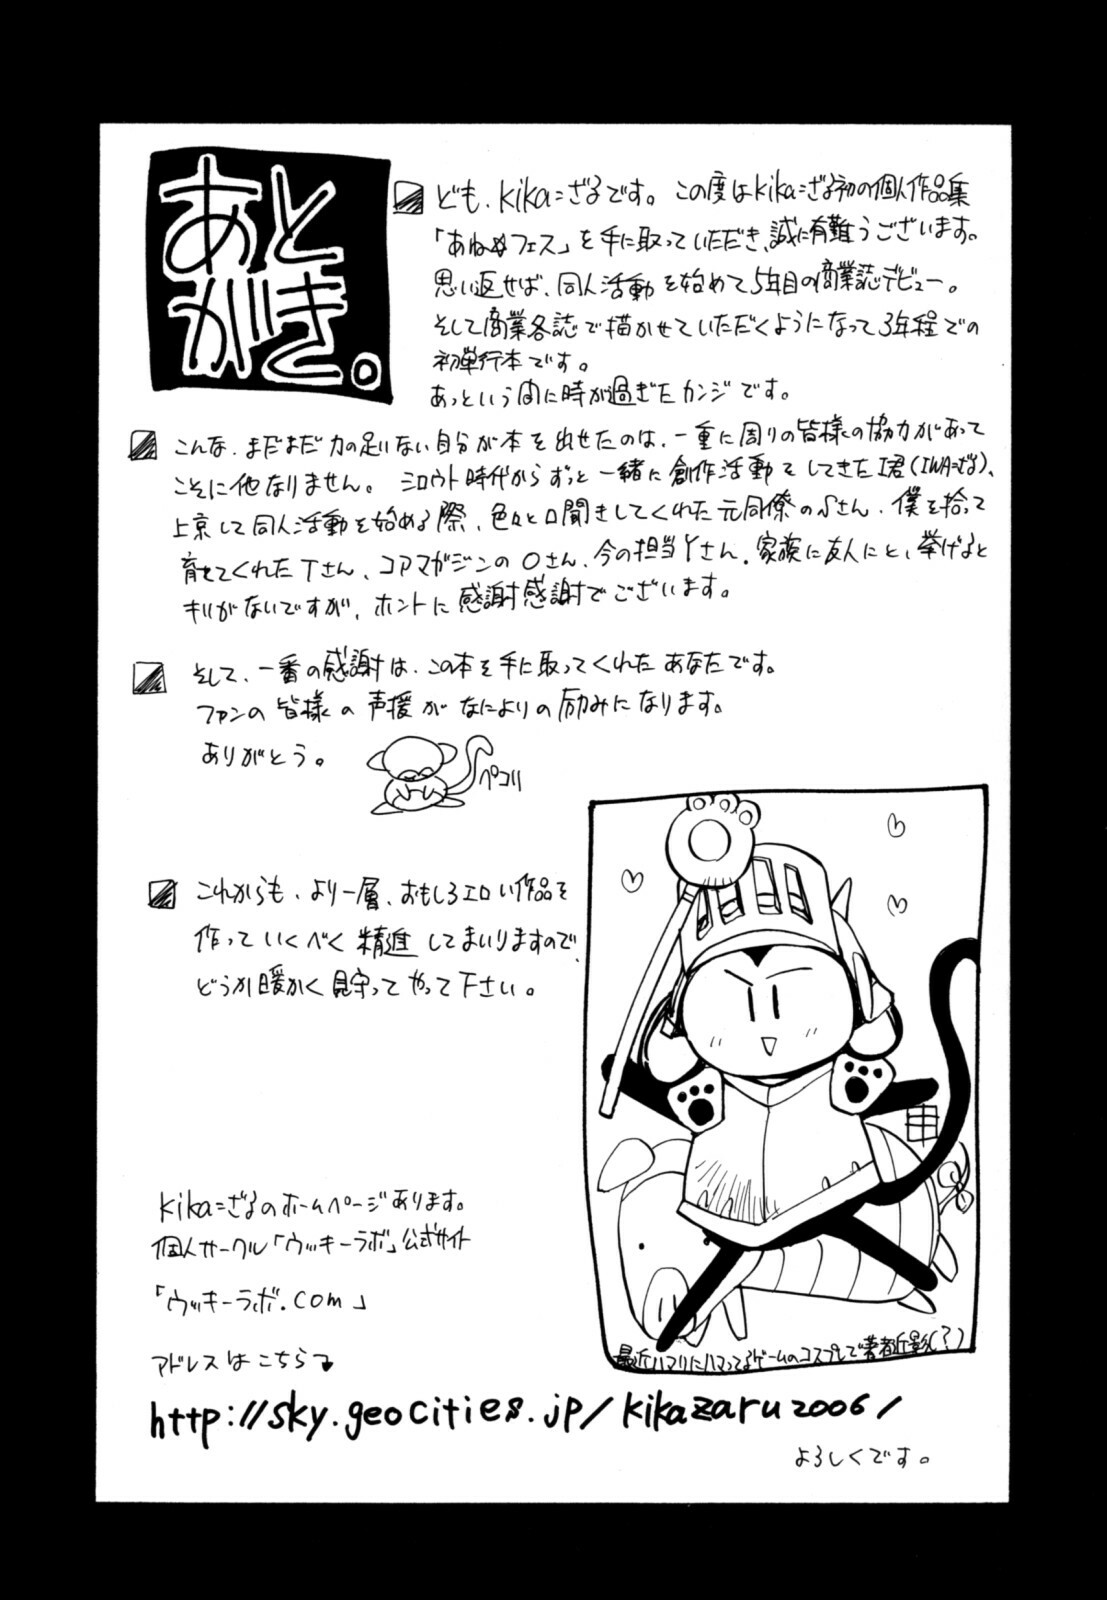 あと
がき。
ども、kika=ざるです。この度はkika=ざる初の個人作品集
「あねめフェス」を手に取っていただき、誠に有難うございます。
思い返せば、同人活動を始めて5年目の商業誌デビュー。
そして商業各誌で描かせていただくようになって3年程での
初単行本です。
あっという間に時が過ぎたカンジです。
こんな、まだまだ力の足りない自分が本を出せたのは、一重に周りの皆様の協力があって
こそに他なりません。シロウト時代からずっと一緒に創作活動をしてきたI君(IWA=ざる)、
上京して同人活動を始める際、色々と口聞きしてくれた元同僚のSさん、僕を拾って
育ててくれたTさん、コアマガジンのOさん、今の担当Yさん、家族に友人にと、挙げると
キリがないですが、ホントに感謝感謝でございます。
そして、一番の感謝は、この本を手に取ってくれたあなたです。
ファンの皆様の声援がなによりの励みになります。
ありがとう。
ペコリ
これからも、より一層、おもしろエロい作品を
作っていくべく精進してまいりますので、
どうか暖かく見守ってやって下さい。
kika=ざるのホームページあります。
個人サークル「ウッキーラボ」公式サイト
「ウッキーラボ.com」
アドレスはこちら
http://sky.geocities.jp/kikazaru2006/
よろしくです。
最近ハマりにハマってるゲームのコスプレで著者近影(?)